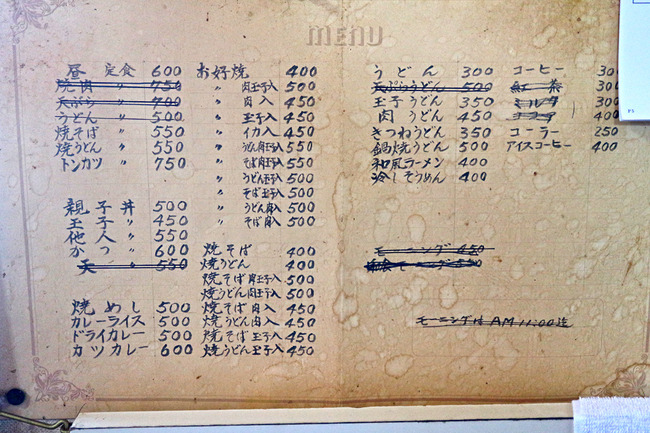 MENU
昼 定食 600
焼肉 〃 750
天ぷら 〃 700
うどん 〃 500
焼そば 〃 550
焼うどん 〃 550
トンカツ 〃 750
親子丼 500
玉子 〃 450
他人 〃 550
かつ 〃 600
天 〃 550
焼めし 500
カレーライス 500
ドライカレー 500
カツカレー 600
お好焼 400
〃 肉玉子入 500
〃 肉入 450
〃 玉子入 450
〃 イカ入 450
〃 うどん肉玉子入 550
〃 そば肉玉子入 550
〃 うどん玉子入 500
〃 そば玉子入 500
〃 うどん肉入 500
〃 そば肉入 500
焼そば 400
焼うどん 400
焼そば肉玉子入 500
焼うどん肉玉子入 500
焼そば肉入 450
焼うどん肉入 450
焼そば玉子入 450
焼うどん玉子入 450
うどん 300
天ぷらうどん 500
玉子うどん 350
肉うどん 450
きつねうどん 350
鍋焼うどん 500
和風ラーメン 400
冷しそうめん 400
モーニング 450
モーニング 550
モーニングは AM 11:00迄
コーヒー 300
紅茶 300
ミルク 300
400
コーラー 250
アイスコーヒー 400